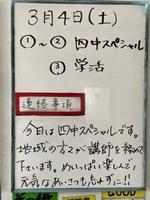 3月4日(土)
①～②四中スペシャル
③学活
連絡事項
今日は四中スペシャルです。
地域の方々が講師を務めて
下さいます。めいっぱい楽しんで、
元気なあいさつも忘れずに!!
GOOD